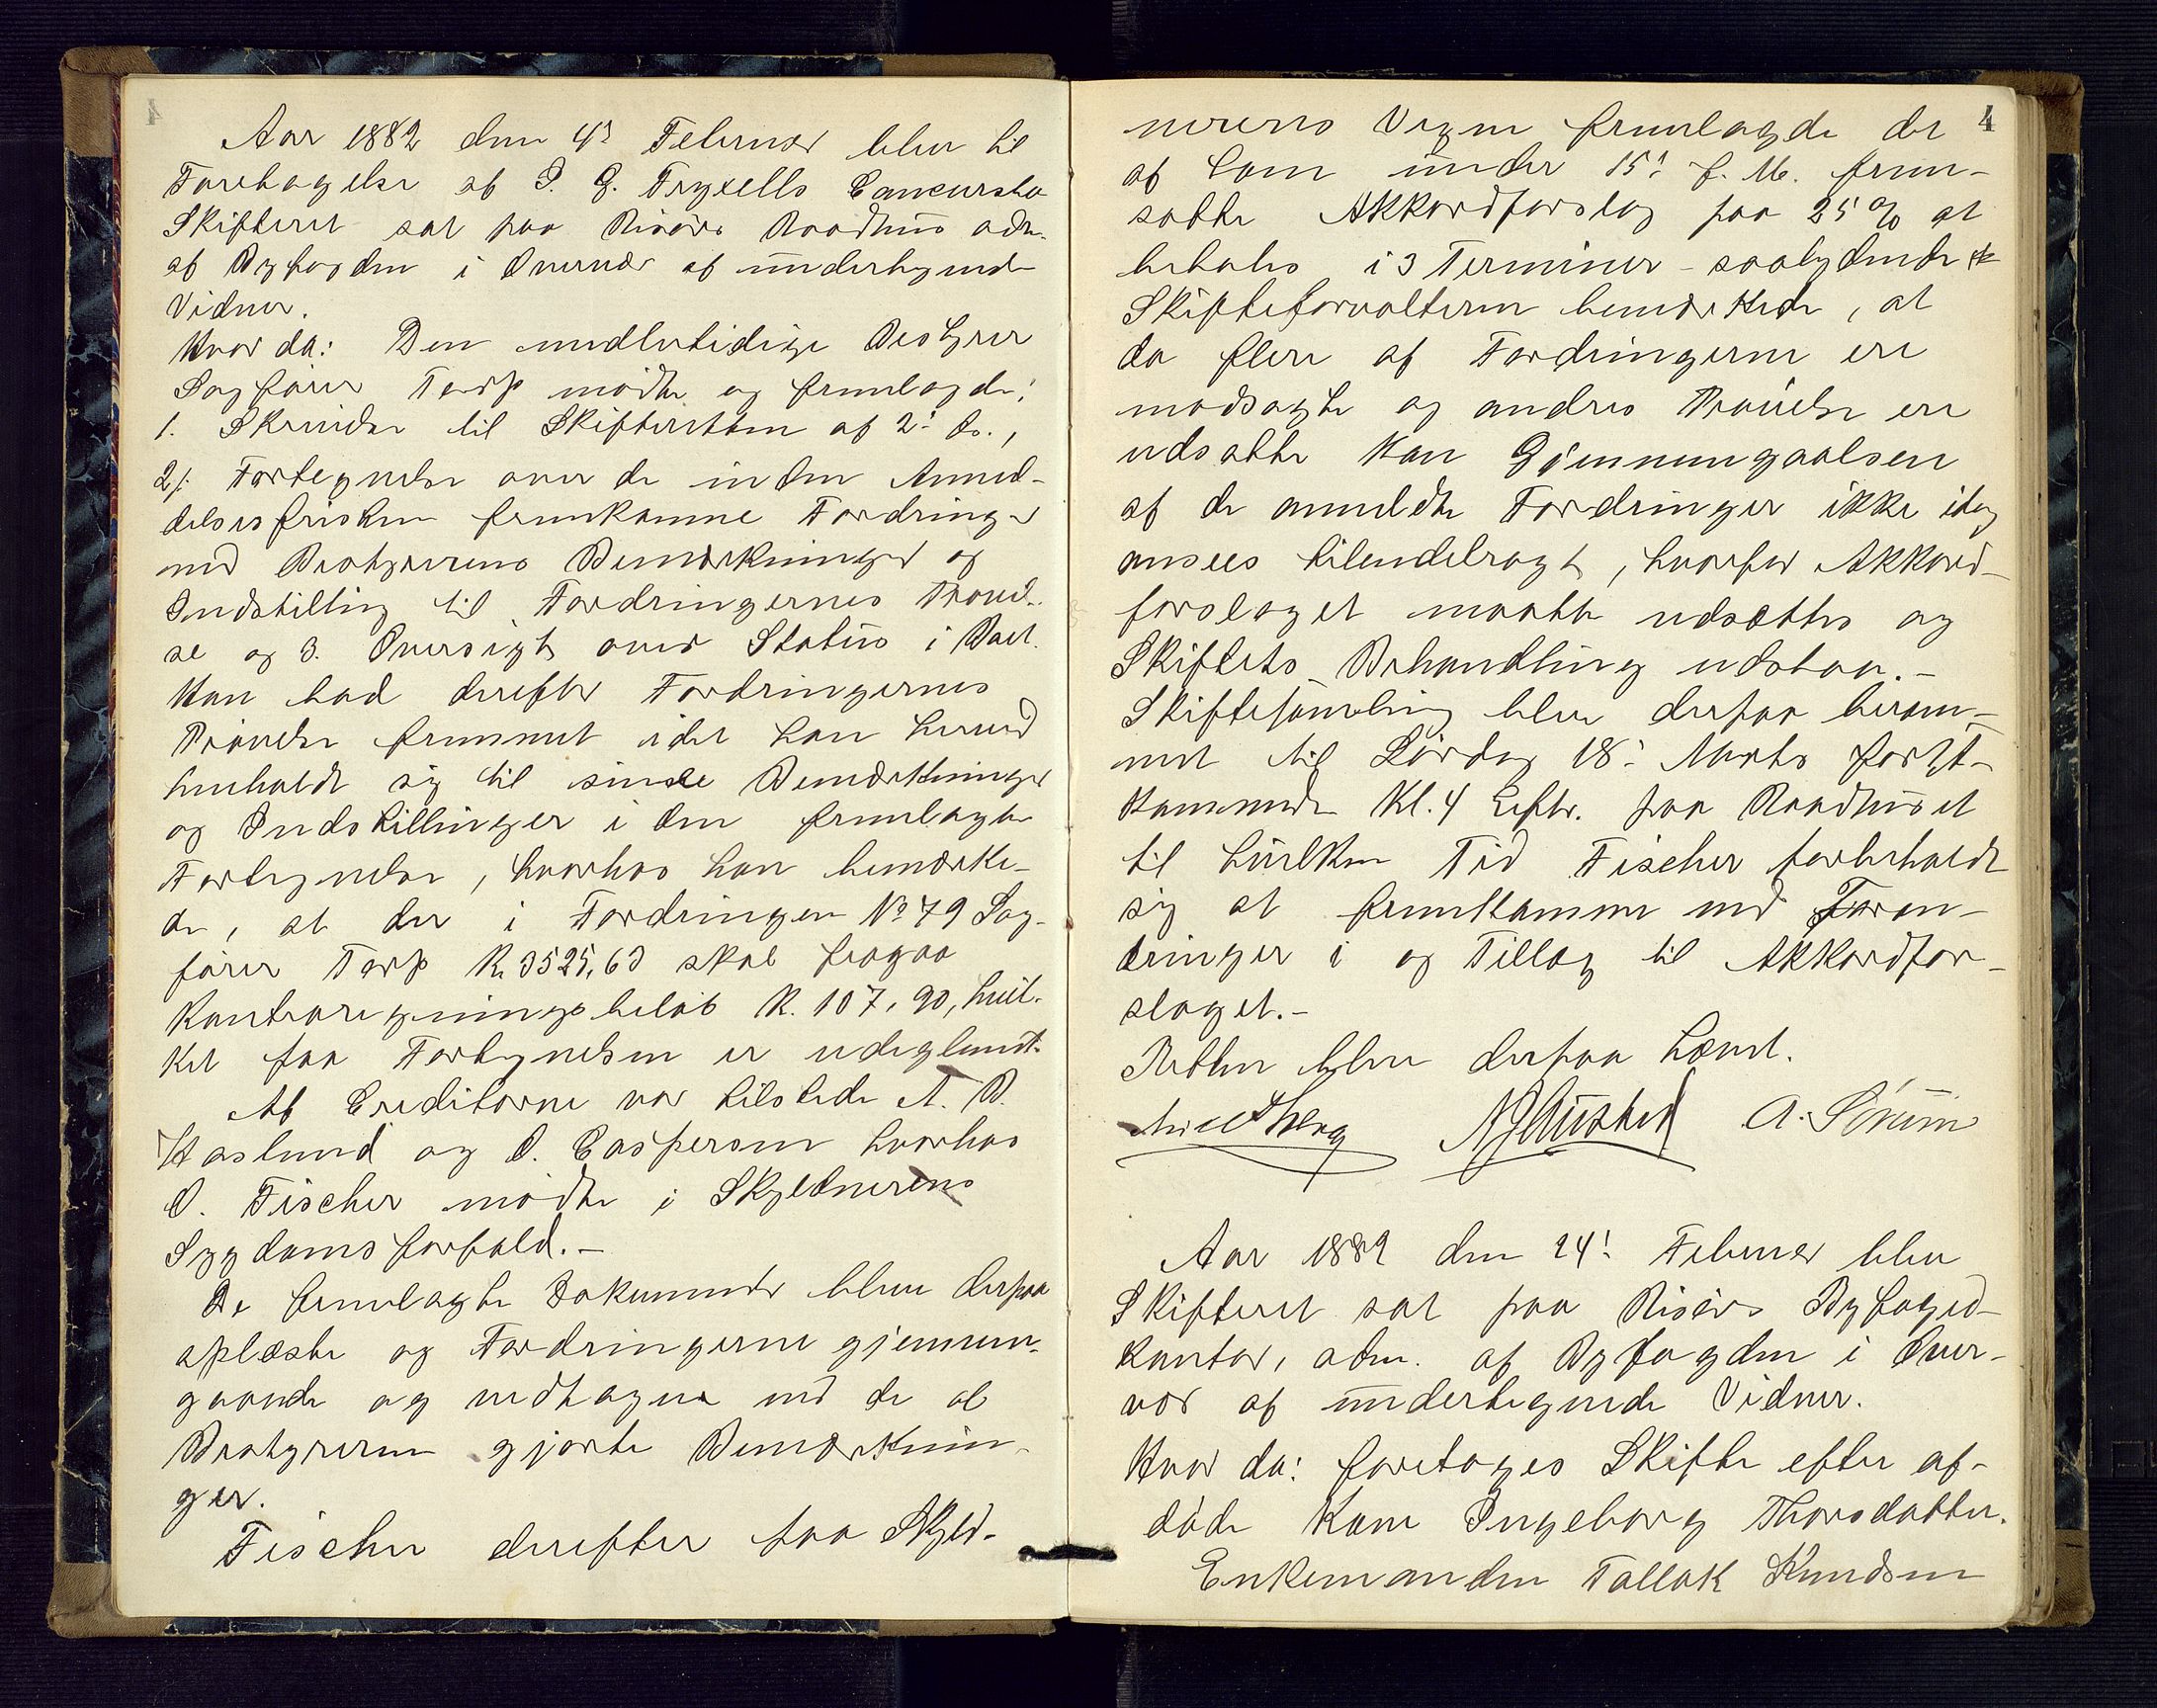 Aar 1882 den 4de Februar blev til
Foretagelse af P. G. Fryxells Concursbo
Skifteret sat paa Risørs Raadhuus adm.
af Byfogden i Overvær af undertegnede
Vidner.
Hvor da: Den midlertidige Bestyrer
Sagfører Tarp mødte og fremlagde:
1. Skrivelse til Skifteretten af 2d ds.,
2/. Fortegnelse over de inden Anmel-
delsesfristen fremkomne Fordringer
med Bestyrerens Bemærkninger og
Indstilling til Fordringernes Prøvel-
se og 3. Oversigt over Status i Boet.
Han bad derefter Fordringernes
Prøvelse fremmet idet han herved
henholdt sig til sine Bemærkninger
og Indstillinger i den fremlagte
Fortegnelse, hvorhos han bemærke-
de, at der i Fordringen No 79 Sag-
fører Tarp Kr 3525,63 skal fragaa
Kontraregningsbeløb Kr. 107,90, hvil-
ket paa Fortegnelsen er udeglemt.
Af Creditorne var tilstede A. B.
Haslund og O. Caspersen hvorhos
O. Fischer mødte i Skyldnerens
Sygdomsforfald.-
De fremlagte Dokumenter blev derpaa
oplæste og Fordringerne gjennem-
gaaede og vedtagne med de af
Bestyreren gjorte Bemærknin-
ger.
Fischer derefter paa Skyld-
4
nerens Vegne fremlagde det
af ham under 15d f. M. frem-
satte Akkordforslag paa 25 % at
betales i 3 Terminer - saalydende
Skifteforvalteren bemærkede, at
da flere af Fordringerne ere
modsagte og andres Prøvelse ere
udsatte kan Gjennemgaaelsen
af de anmeldte Fordringer ikke idag
ansees tilendebragt, hvorfor Akkord-
forslaget maatte udsættes og
Skiftets Behandling udstaa.-
Skiftesamling blev derpaa beram-
met til Lørdag 18d Marts førstk-
kommende Kl. 4 Eftr. paa Raadhuset
til hvilken Tid Fischer forbeholdt
sig at fremkomme med Foran-
dringer i og Tillæg til Akkordfor-
slaget.-
Retten blev derpaa hævet.
A. Sørum
Aar 1882 den 24d Februar blev
Skifteret sat paa Risørs Byfoged-
kontor, adm. af Byfogden i Over-
vær af undertegnede Vidner.
Hvor da: foretoges Skifte efter af-
døde Kone Ingeborg Thorsdatter.
Enkemanden Tallak Knudsen